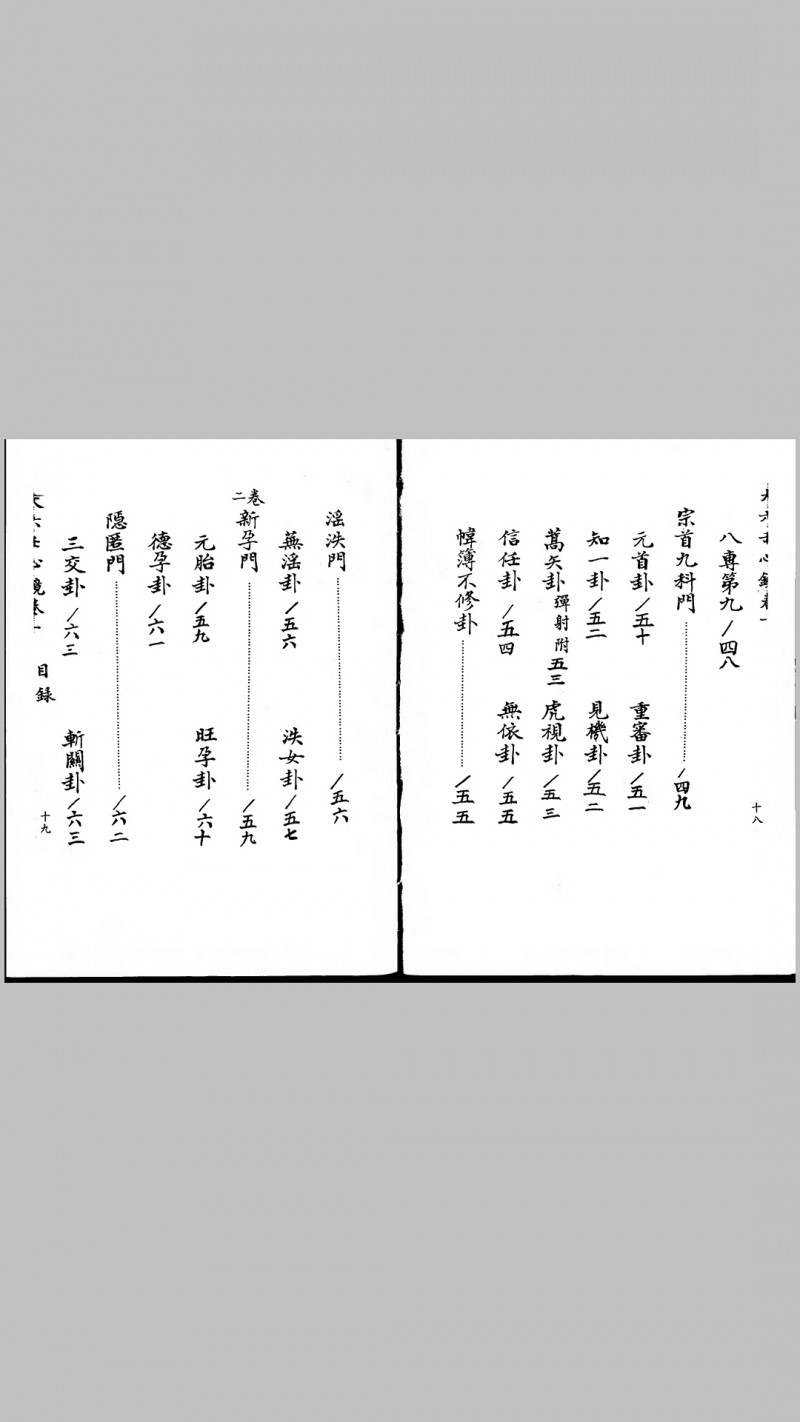 大六壬心鏡卷一
十八
八專第九/四八
宗首九科門/四九
元首卦/五十 重審卦/五一
知一卦/五二 見機卦/五二
蒿矢卦彈射附五三 虎視卦/五三
信任卦/五四 無依卦/五五
幃簿不修卦/五五
淫泆門/五六
蕪淫卦/五六 泆女卦/五七
卷二
新孕門/五九
元胎卦/五九 旺孕卦/六十
德孕卦/六一
隱匿門/六二
三交卦/六三 斬關卦/六三
大六壬心鏡卷一 目錄 十九